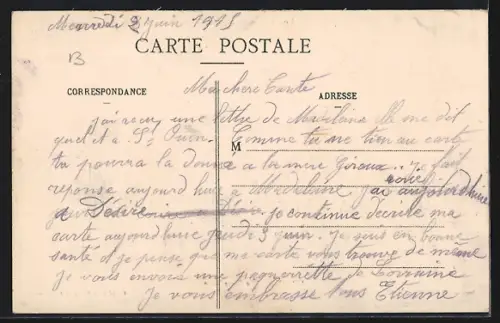 Mercredi 2 juin 1915
CARTE POSTALE
B
Ma chere Tante
CORRESPONDANCE
ADRESSE
j'ai reçu une lettre de Madelaine Elle me dit
quel et a St Ouin. Comme tu ne tien au carte
M
tu pourra la donné a ta mère Giroux. Je fait
reponse aujourd huie a Madeleine j'ai aujourdhuie
Désire je continue décrire ma
carte aujourdhuie jeudi 3 juin. Je suis en bonne
santé et je pense que ma carte vous trouve de même
Je vous envoie une de Lorraine
Je vous embrasse tous Etienne